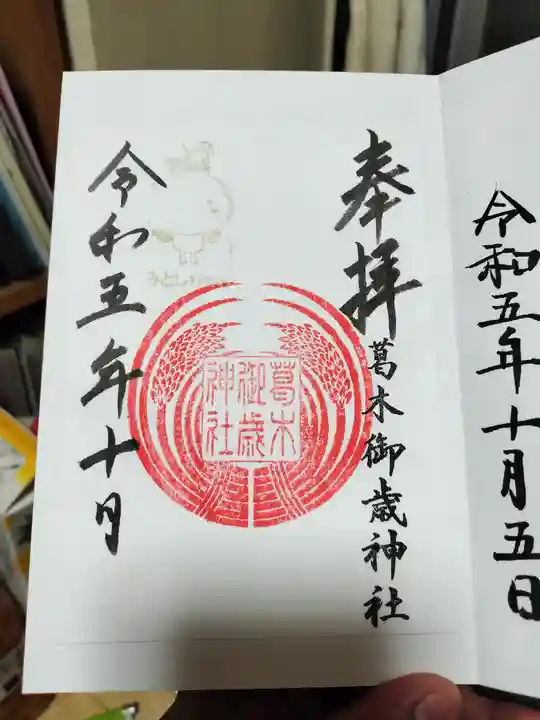 令和五年十月五日
奉拝
葛木御歳神社
葛木
御歳
神社
令和五年十月